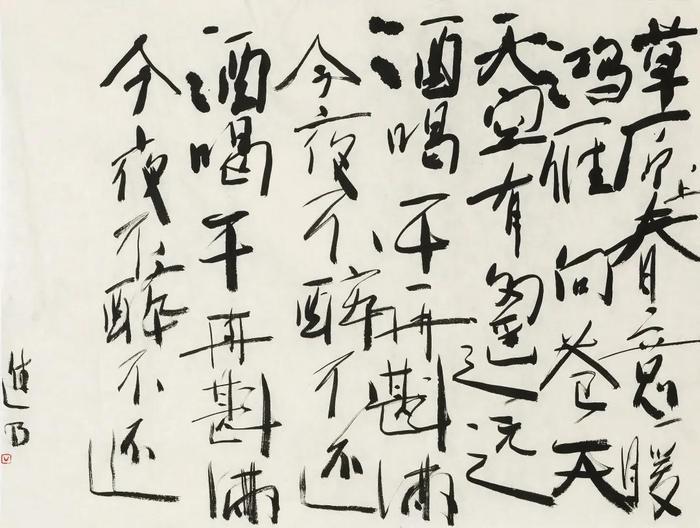 草原上春意暖
鸿雁向苍天
天空有多遥远
酒喝干再斟满
今夜不醉不还
酒喝干再斟满
今夜不醉不还